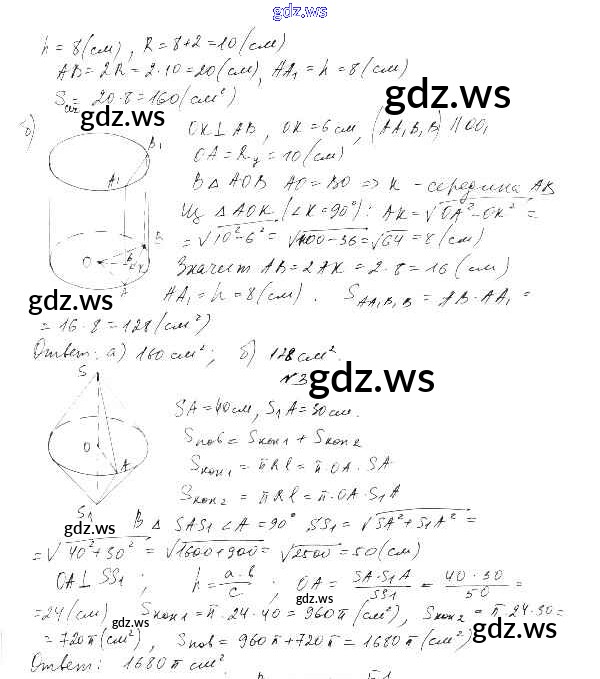 gdz.ws
h = 8 (см), R = 8+2 = 10 (см)
AB = 2R = 2·10 = 20 (см), AA₁ = h = 8 (см)
Sсеч = 20·8 = 160 (см²)
gdz.ws
gdz.ws
б) OK⊥AB, OK = 6 см, (AA₁B₁B) || OO₁
OA = Rц = 10 (см)
В △ AOB AO = BO => K - середина AB
Из △ AOK (∠K = 90°): AK = √OA² - OK² =
= √10² - 6² = √100 - 36 = √64 = 8 (см)
Значит AB = 2AK = 2·8 = 16 (см)
AA₁ = h = 8 (см). S AA₁B₁B = AB·AA₁ =
= 16·8 = 128 (см²)
B₁
A₁
B
O
6
A
gdz.ws
gdz.ws
Ответ: а) 160 см²; б) 128 см².
№3
gdz.ws
S
O
A
S₁
SA = 40 см, S₁A = 30 см.
Sпов = Sкон1 + Sкон2
Sкон1 = πRl = π·OA·SA
Sкон2 = πRl = π·OA·S₁A
gdz.ws
gdz.ws
В △ SAS₁ ∠A = 90° SS₁ = √SA² + S₁A² =
= √40² + 30² = √1600 + 900 = √2500 = 50 (см)
OA⊥SS₁; h = a·b/c; OA = SA·S₁A/SS₁ = 40·30/50 =
gdz.ws
= 24 (см) Sкон1 = π·24·40 = 960π (см²), Sкон2 = π·24·30 =
gdz.ws
gdz.ws
= 720π (см²), Sпов = 960π + 720π = 1680π (см²)
Ответ: 1680π см².
gdz.ws